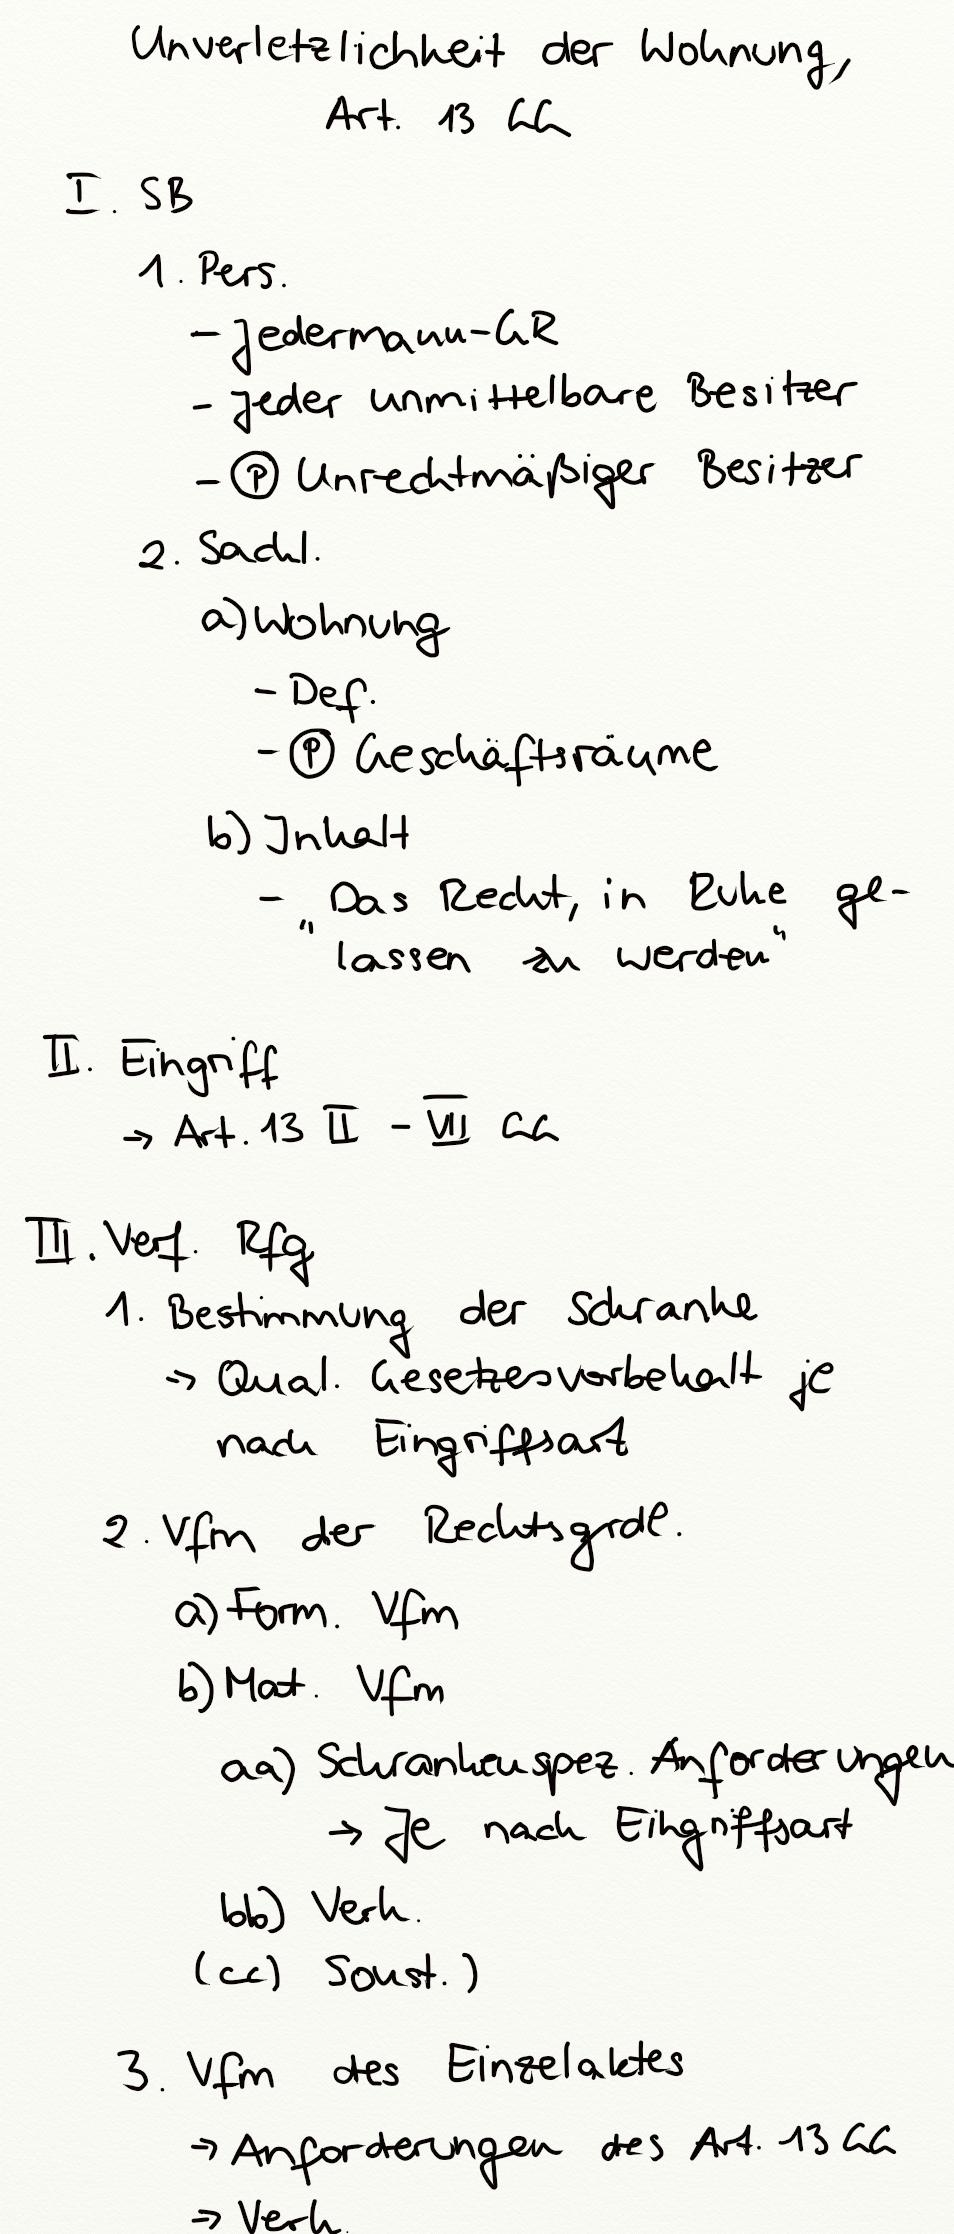 Unverletzlichkeit der Wohnung,
Art. 13 GG
I. SB
1. Pers.
- Jedermann-GR
- Jeder unmittelbare Besitzer
- Ⓟ Unrechtmäßiger Besitzer
2. Sachl.
a) Wohnung
- Def.
- Ⓟ Geschäftsräume
b) Inhalt
- „Das Recht, in Ruhe ge-
lassen zu werden“
II. Eingriff
→ Art. 13 II - VII GG
III. Verf. Rfg
1. Bestimmung der Schranke
→ Qual. Gesetzesvorbehalt je
nach Eingriffsart
2. Vfm der Rechtsgrdl.
a) Form. Vfm
b) Mat. Vfm
aa) Schrankenspez. Anforderungen
→ Je nach Eingriffsart
bb) Verh.
(cc) Sonst.)
3. Vfm des Einzelaktes
→ Anforderungen des Art. 13 GG
→ Verh.